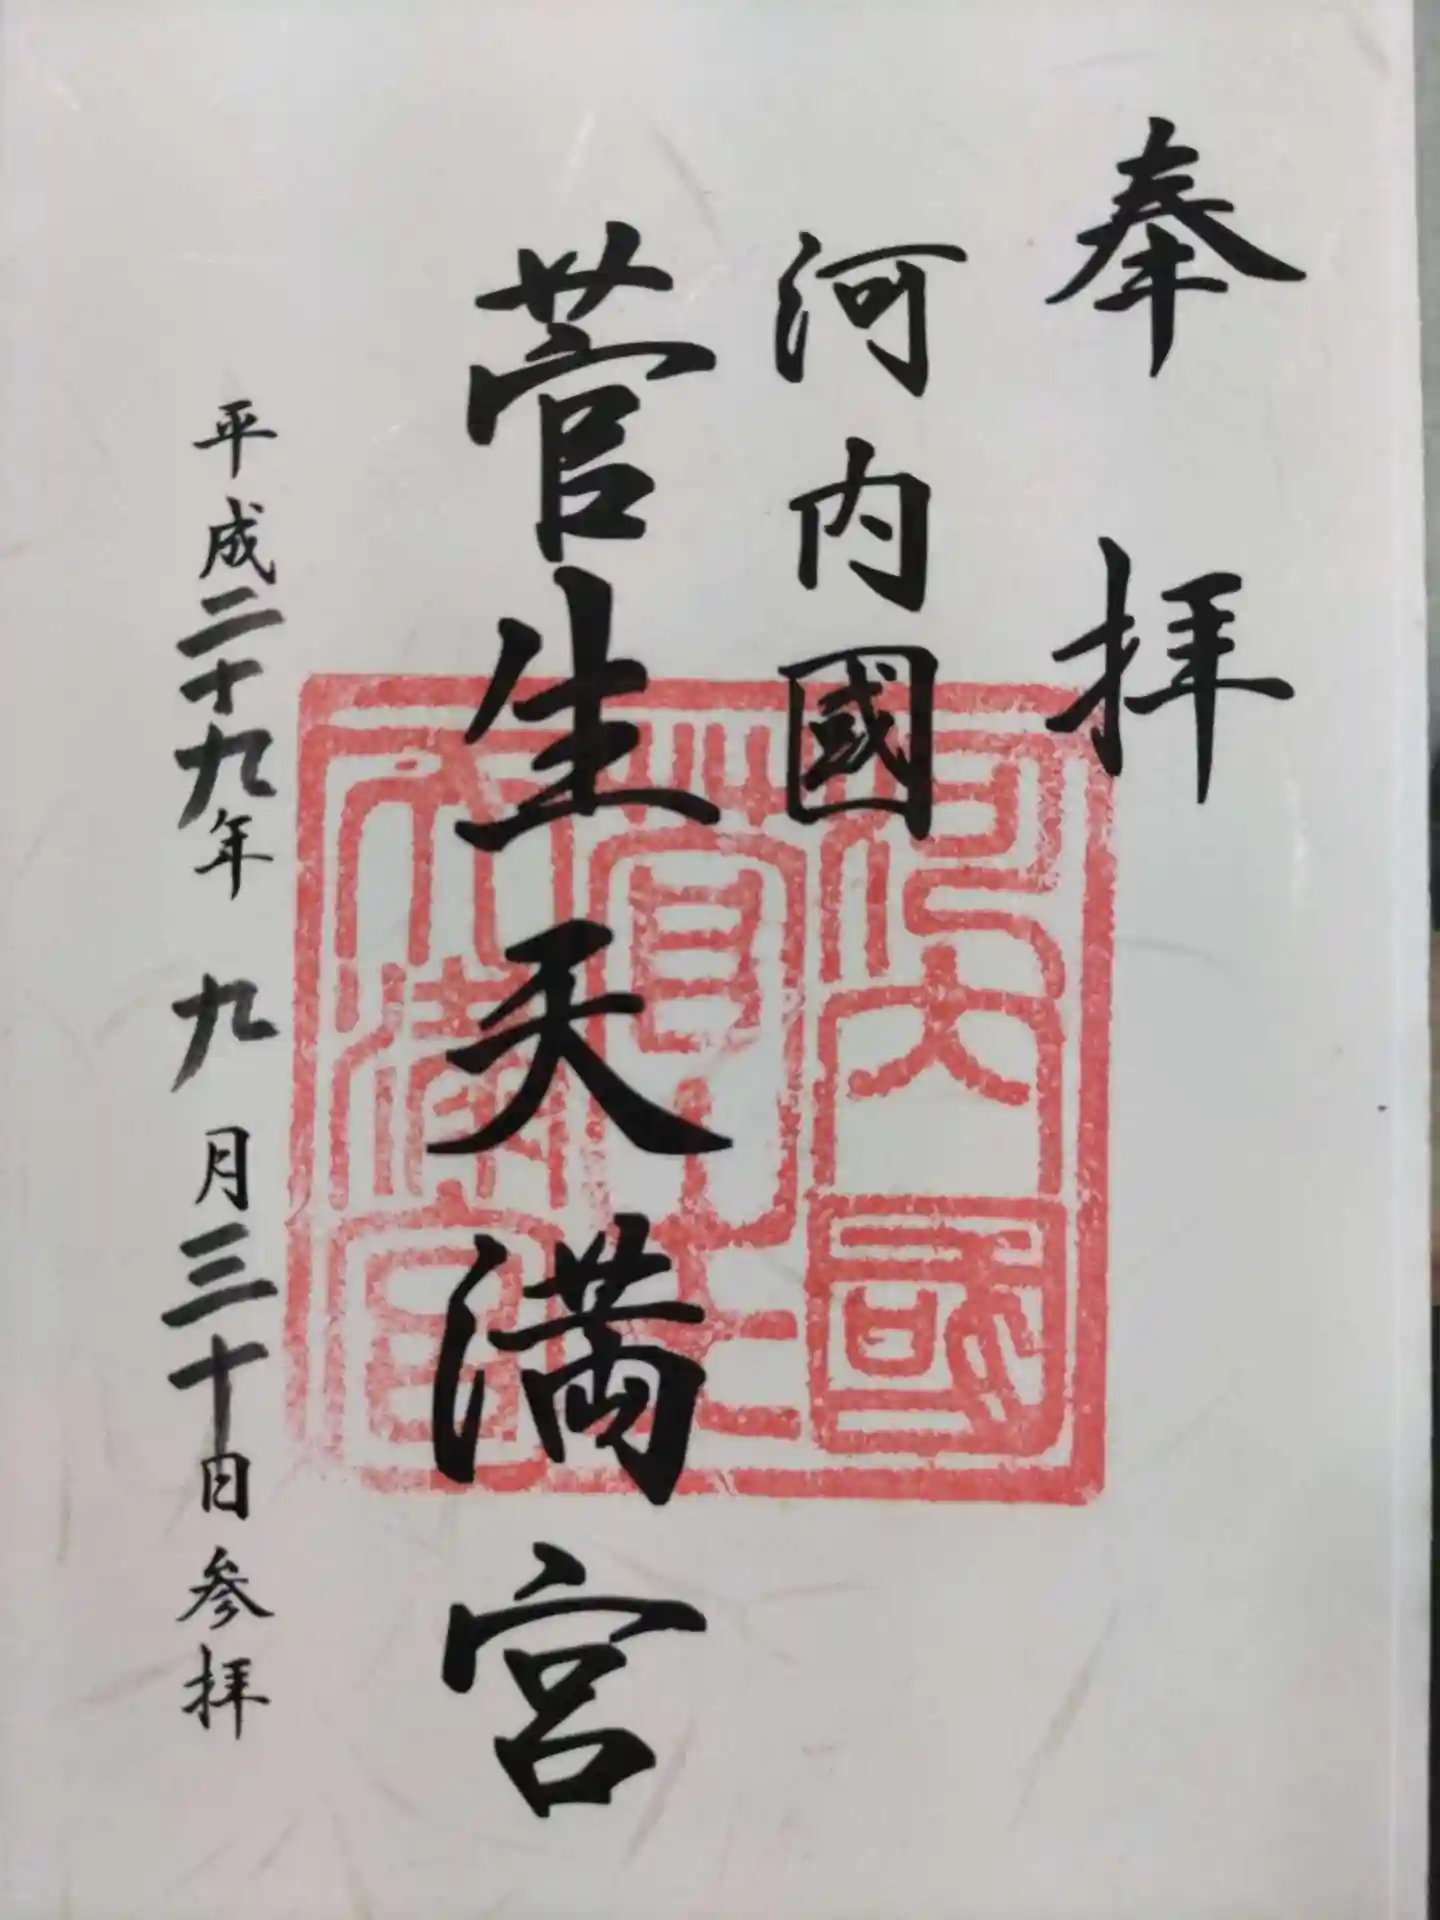 奉拝
河内國
菅生天満宮
平成二十九年 九月三十日参拝
河内國
菅生
天満宮